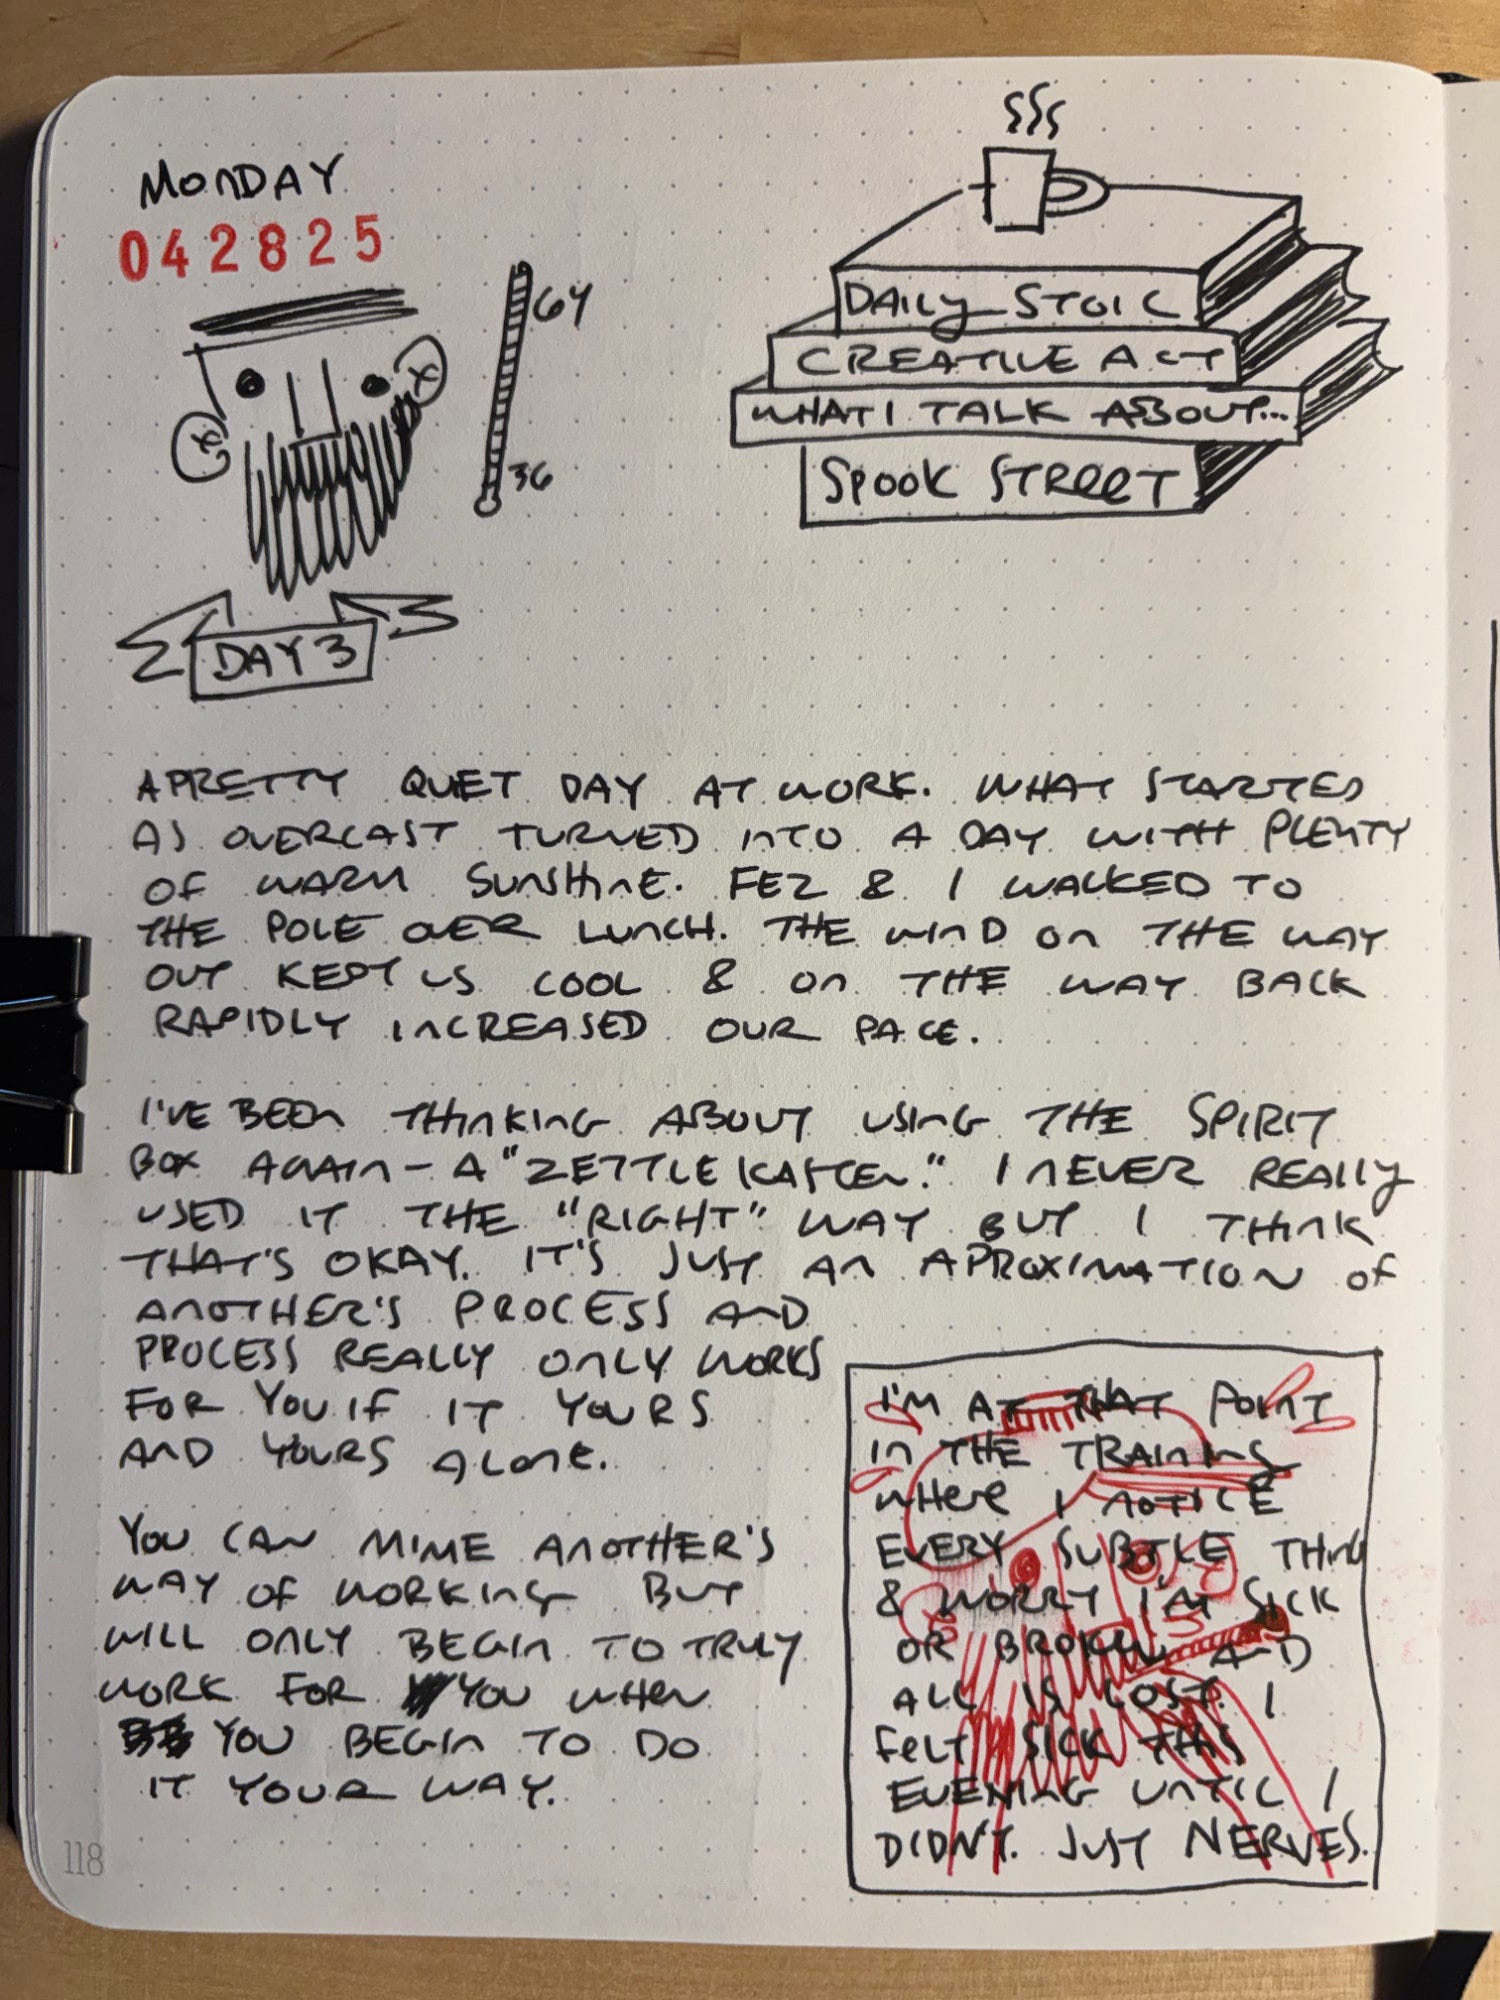 MONDAY
042825
64
36
DAY 3
DAILY STOIC
CREATIVE ACT
WHAT I TALK ABOUT...
SPOOK STREET
A PRETTY QUIET DAY AT WORK. WHAT STARTED
AS OVERCAST TURNED INTO A DAY WITH PLENTY
OF WARM SUNSHINE. FEZ & I WALKED TO
THE POLE OVER LUNCH. THE WIND ON THE WAY
OUT KEPT US COOL & ON THE WAY BACK
RAPIDLY INCREASED OUR PACE.
I'VE BEEN THINKING ABOUT USING THE SPIRIT
BOX AGAIN - A "ZETTLEKASTEN." I NEVER REALLY
USED IT THE "RIGHT" WAY BUT I THINK
THAT'S OKAY. IT'S JUST AN APROXIMATION OF
ANOTHER'S PROCESS AND
PROCESS REALLY ONLY WORKS
FOR YOU IF IT YOURS
AND YOURS ALONE.
YOU CAN MIME ANOTHER'S
WAY OF WORKING BUT
WILL ONLY BEGIN TO TRULY
WORK FOR YOU WHEN
YOU BEGIN TO DO
IT YOUR WAY.
I'M AT THAT POINT
IN THE TRAINING
WHERE I NOTICE
EVERY SUBTLE THING
& WORRY I'M SICK
OR BROKEN AND
ALL IS LOST. I
FELT SICK THIS
EVENING UNTIL I
DIDN'T. JUST NERVES.
118